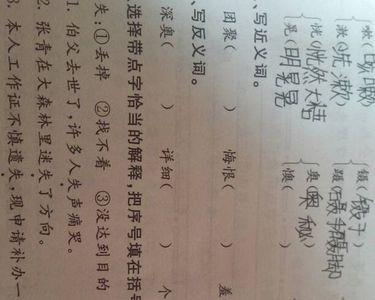 嗽(咳嗽) 镊(镊子
漱(洗漱) 蹑(蹑手蹑脚
恍(恍然大 奥(奥秘)
晃(明晃晃 懊(
、写近义词。
团聚( ) 悔恨( ) 羞
、写反义词。
深奥( ) 详细( ) 个
选择带点字恰当的解释,把序号填在括号
失:①丢掉 ②找不着 ③没达到目的
1. 伯父去世了,许多人失声痛哭。
2. 张青在大森林里迷失了方向。
3. 本人工作证不慎遗失,现申请补办一